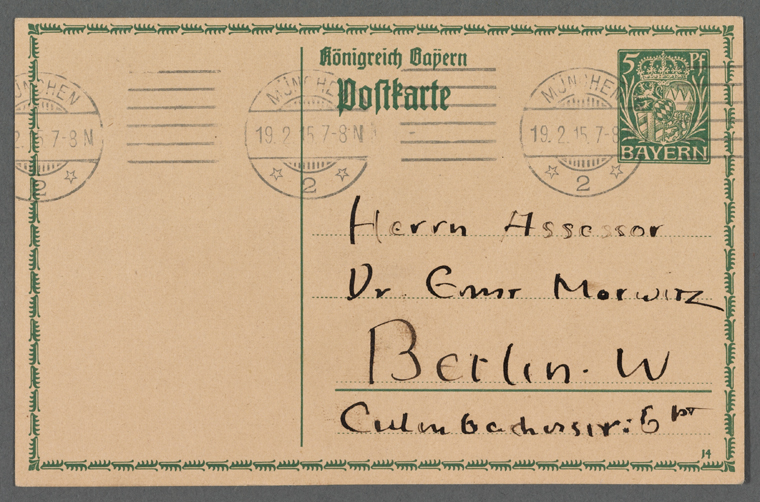 Königreich Bayern
Postkarte
5 Pf
BAYERN
MÜNCHEN
2. 15 7-8 N
2
MÜNCHEN
19. 2. 15 7-8 N
2
MÜNCHEN
19. 2. 15 7-8
2
Herrn Assessor
Dr. Ernst Morwitz
Berlin. W
Culmbacherstr: 6
14